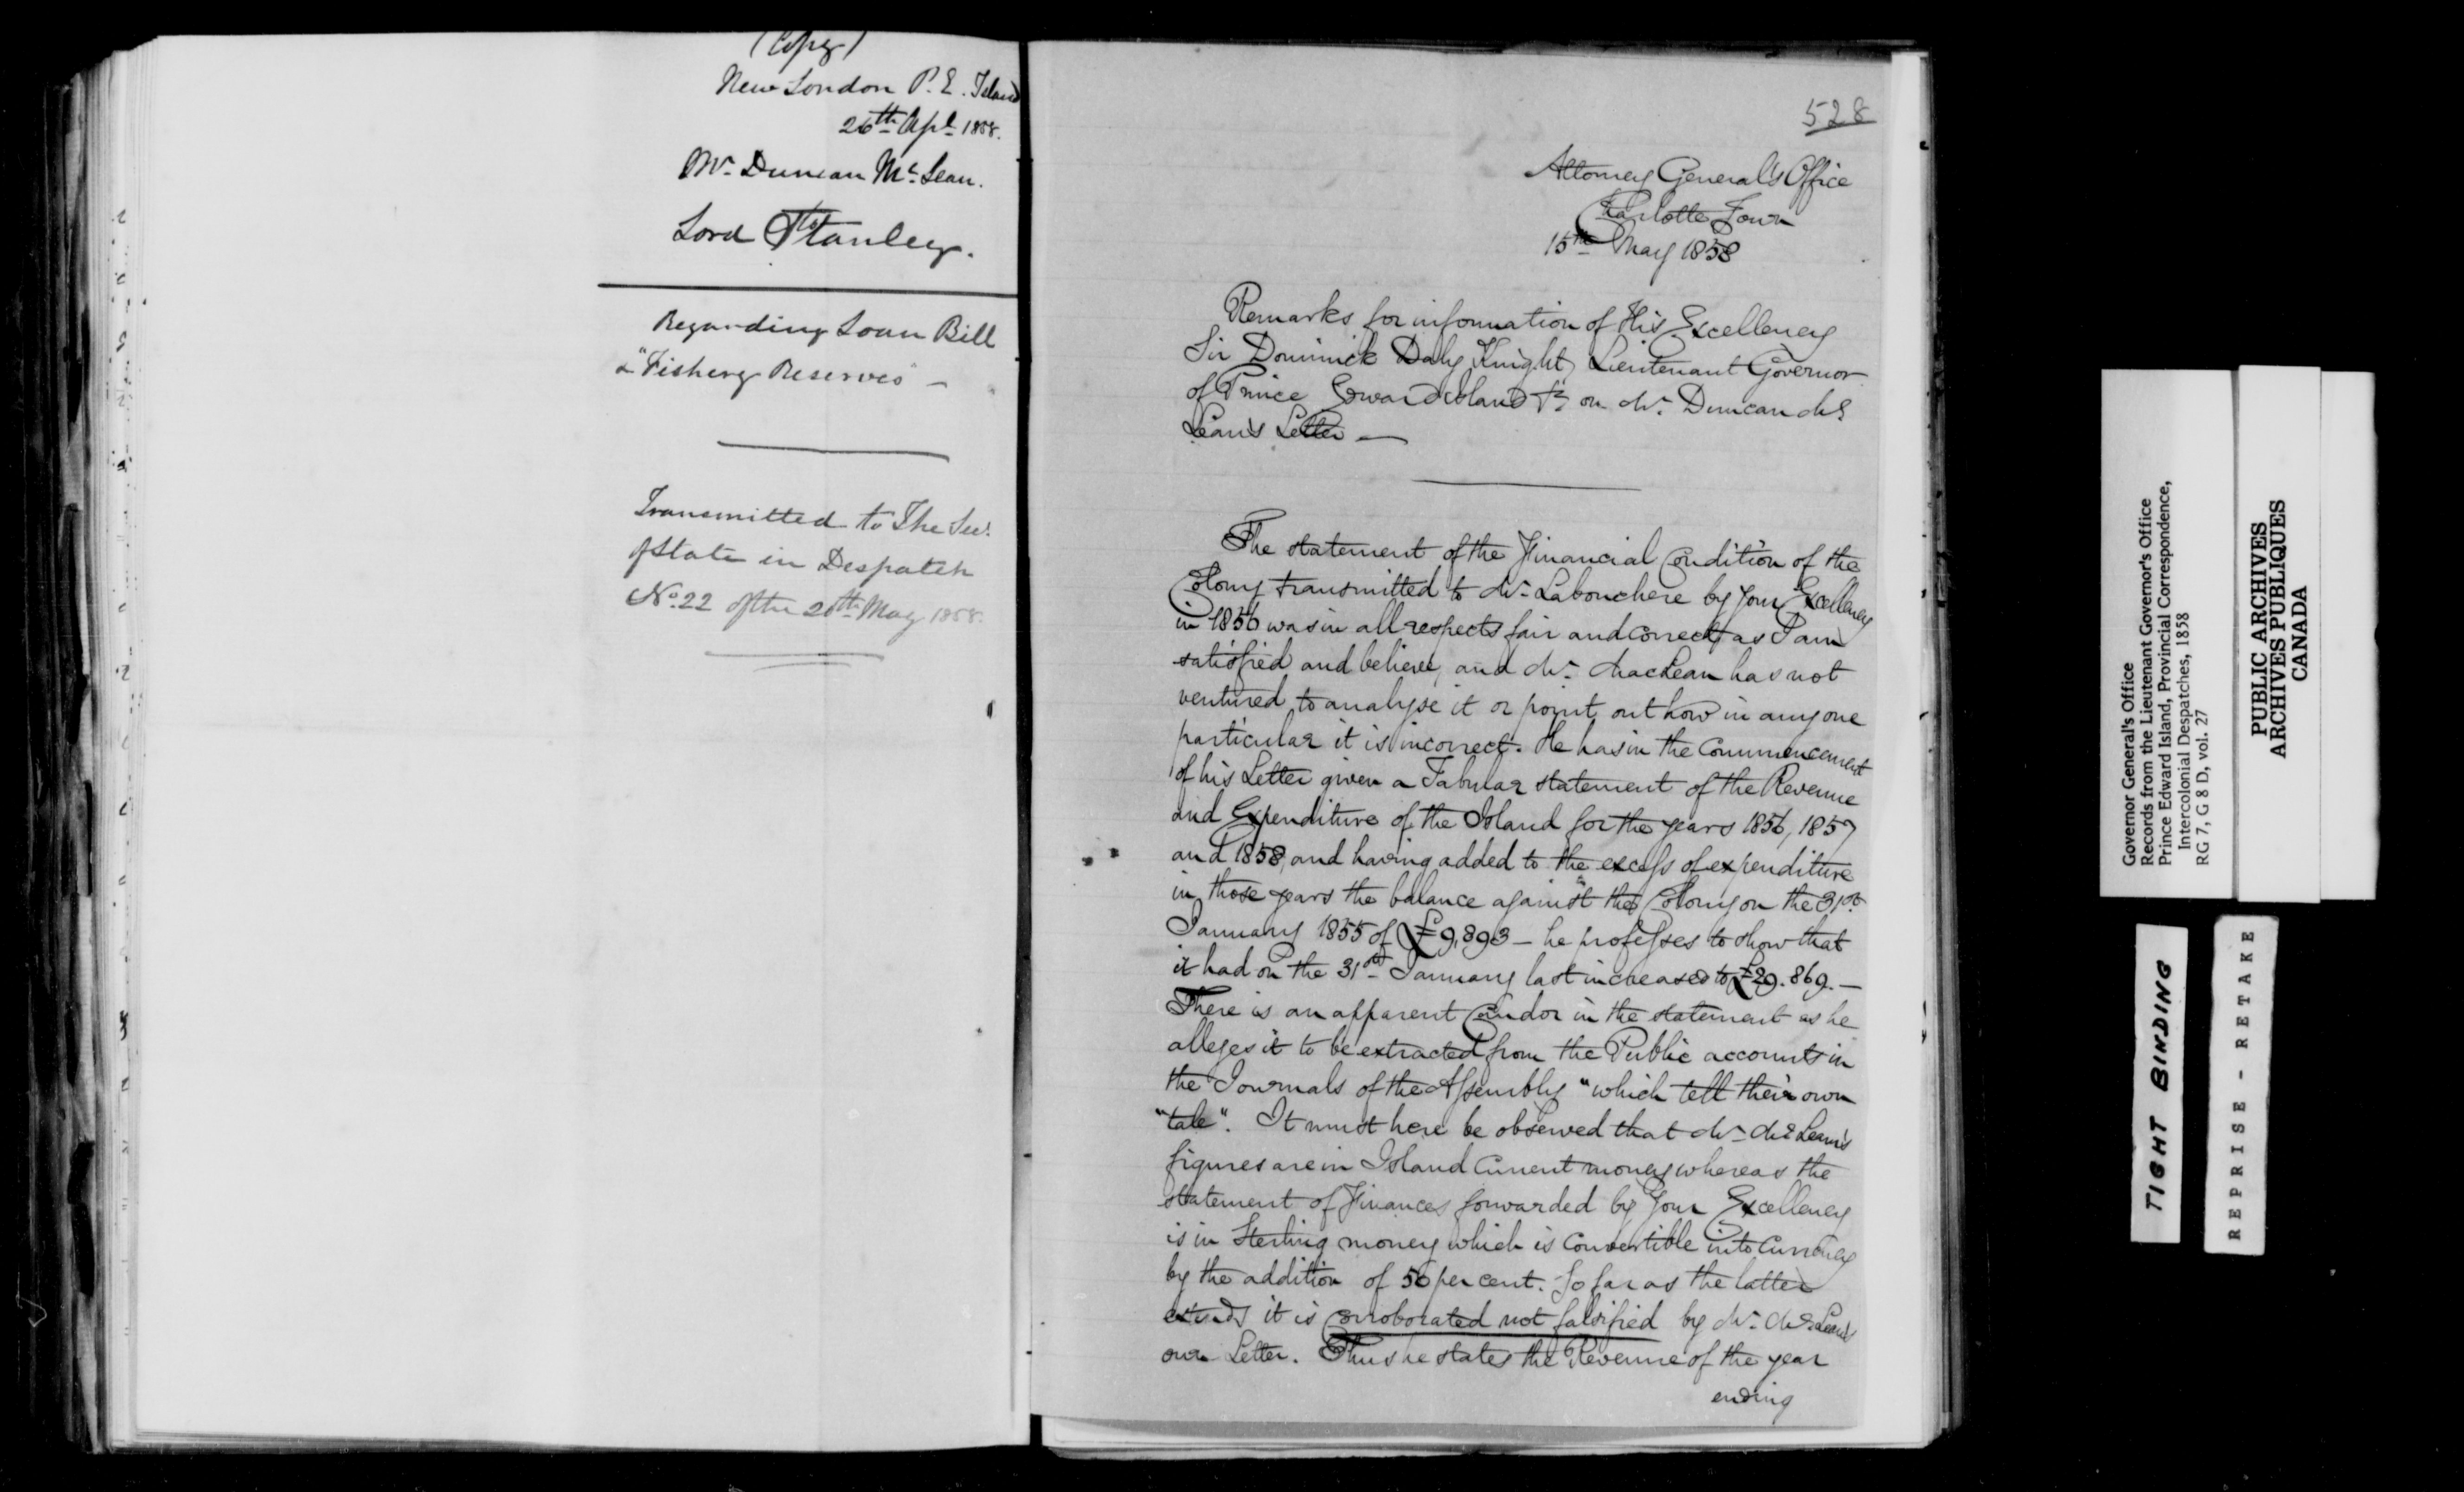 (Copy)
New London P. E. Island
26th Apl 1858.
Mr Duncan McLean.
to
Lord Stanley.
Regarding Loan Bill
& "Fishery Reserves" —
Transmitted to The Secy.
of State in Despatch
No. 22 of the 20th May 1858.
528
Attorney General's Office
Charlotte Town
15th May 1858
Remarks for information of His Excellency
Sir Dominick Daly Knight, Lieutenant Governor
of Prince Edward Island &c on Mr. Duncan Mc
Lean's Letter —
The statement of the Financial Condition of the
Colony transmitted to Mr. Labouchere by Your Excellency
in 1856 was in all respects fair and correct, as I am
satisfied and believe, and Mr. MacLean has not
ventured to analyse it or point out how in any one
particular it is incorrect. He has in the Commencement
of his Letter given a Tabular statement of the Revenue
and Expenditure of the Island for the years 1856, 1857
and 1858, and having added to the excess of expenditure
in those years the balance against the Colony on the 31st
January 1855 of £9,893 — he professes to show that
it had on the 31st January last increased to £29.869. —
There is an apparent Candor in the statement as he
alleges it to be extracted from the Public accounts in
the Journals of the Assembly "which tell their own
"tale". It must here be observed that Mr. McLean's
figures are in Island Current money whereas the
statement of Finances forwarded by Your Excellency
is in Sterling money which is Convertible into Currency
by the addition of 50 per cent. So far as the latter
extends it is corroborated not falsified by Mr. McLean's
own Letter. Thus he states the Revenue of the year
ending
Governor General's Office
Records from the Lieutenant Governor's Office
Prince Edward Island, Provincial Correspondence,
Intercolonial Despatches, 1858
RG 7, G 8 D, vol. 27
PUBLIC ARCHIVES
ARCHIVES PUBLIQUES
CANADA
TIGHT BINDING
REPRISE - RETAKE